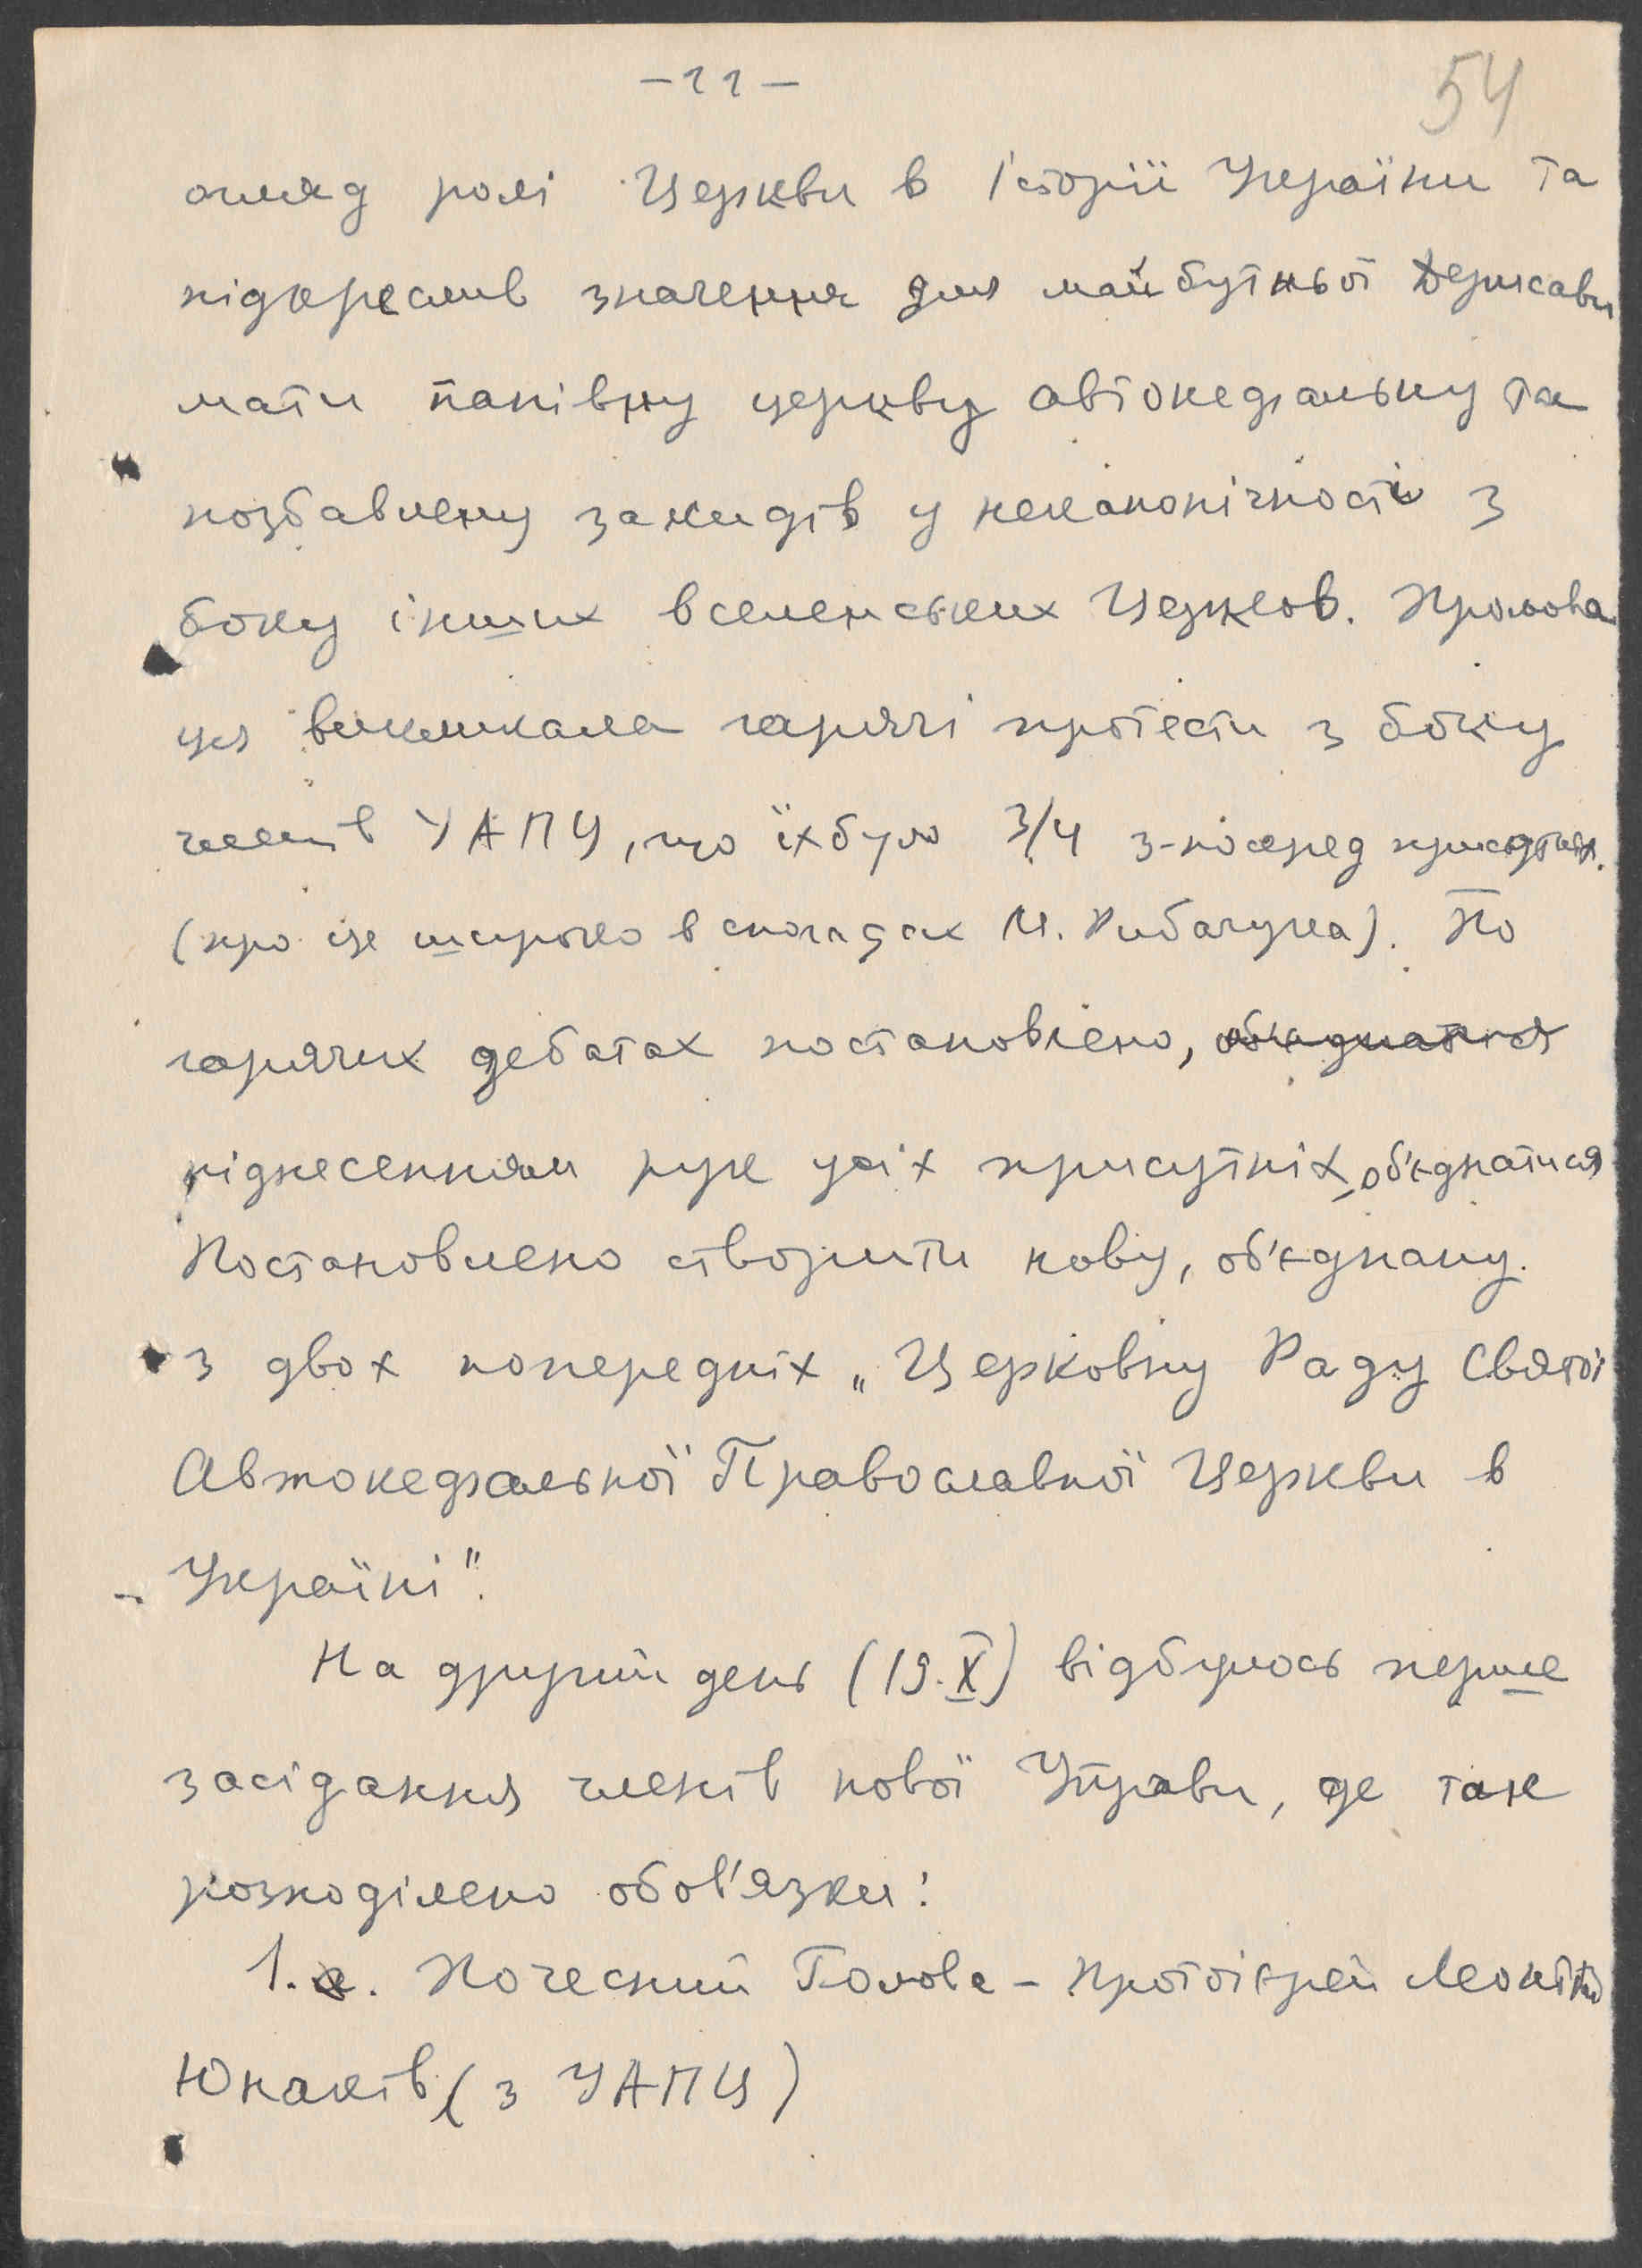 -11-
54
огляд ролі Церкви в Історії України та
підкреслив значення для майбутньої Держави
мати панівну церкву автокефальну та
позбавлену закидів у неканонічності з
боку інших вселенських Церков. Промова
ця викликала гарячі протести з боку
членів УАПЦ, що їх було 3/4 з-посеред присутніх.
(про це широко в спогадах М. Рибачука). По
гарячих дебатах постановлено, об'єднатися
піднесенням рук усіх присутніх, об'єднатися
Постановлено створити нову, об'єднану
з двох попередніх „Церковну Раду Святої
Автокефальної Православної Церкви в
Україні".
На другий день (19.X) відбулось перше
засідання членів нової Управи, де так
розподілено обов'язки:
1. а. Почесний Голова – протоієрей Леонтій
Юнаків (з УАПЦ)